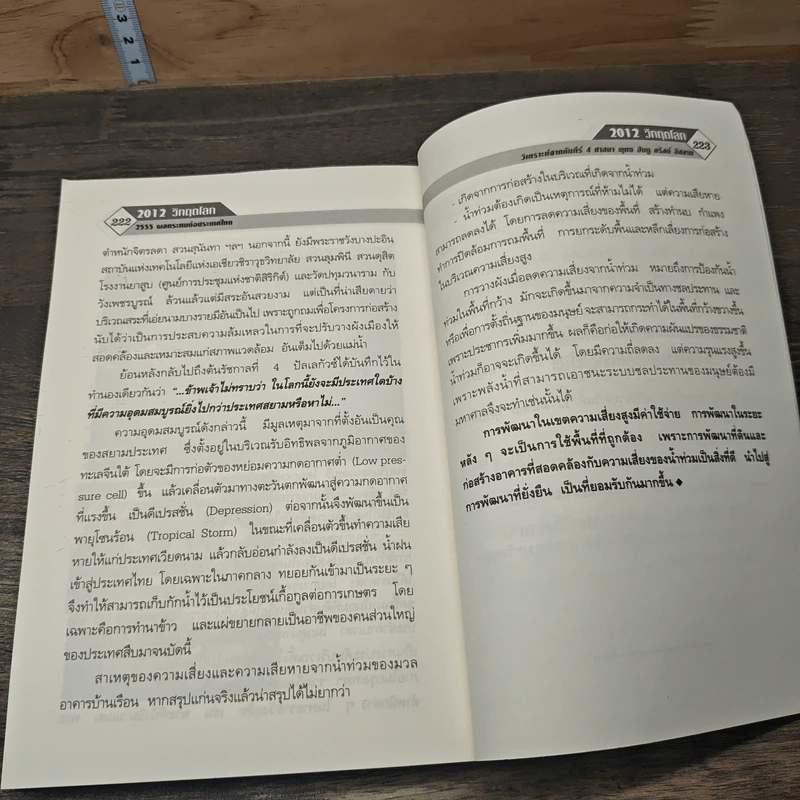 3 2 1
222 2012 วิกฤตโลก
2555 ผลกระทบต่อประเทศไทย
ตำหนักจิตรลดา สวนสุนันทา ฯลฯ นอกจากนี้ ยังมีพระราชวังบางปะอิน
สถาบันแห่งเทคโนโลยีแห่งเอเชียวชิราวุธวิทยาลัย สวนลุมพินี สวนดุสิต
โรงงานยาสูบ (ศูนย์การประชุมแห่งชาติสิริกิติ์) และวัดปทุมวนาราม กับ
วังเพชรบูรณ์ ล้วนแล้วแต่มีสระอันสวยงาม แต่เป็นที่น่าเสียดายว่า
บริเวณสระที่เอ่ยนามบางรายมีอันเป็นไป เพราะถูกถมเพื่อโครงการก่อสร้าง
นับได้ว่าเป็นการประสบความล้มเหลวในการที่จะปรับวางผังเมืองให้
สอดคล้องและเหมาะสมแก่สภาพแวดล้อม อันเต็มไปด้วยแม่น้ำ
ย้อนหลังกลับไปถึงต้นรัชกาลที่ 4 ปัลเลกัวซ์ได้บันทึกไว้ใน
ทำนองเดียวกันว่า “...ข้าพเจ้าไม่ทราบว่า ในโลกนี้ยังจะมีประเทศใดบ้าง
ที่มีความอุดมสมบูรณ์ยิ่งไปกว่าประเทศสยามหรือหาไม่...”
ความอุดมสมบูรณ์ดังกล่าวนี้ มีมูลเหตุมาจากที่ตั้งอันเป็นคุณ
ของสยามประเทศ ซึ่งตั้งอยู่ในบริเวณรับอิทธิพลจากภูมิอากาศของ
ทะเลจีนใต้ โดยจะมีการก่อตัวของหย่อมความกดอากาศต่ำ (Low pres-
sure cell) ขึ้น แล้วเคลื่อนตัวมาทางตะวันตกพัฒนาสู่ความกดอากาศ
ที่แรงขึ้น เป็นดีเปรสชั่น (Depression) ต่อจากนั้นจึงพัฒนาขึ้นเป็น
พายุโซนร้อน (Tropical Storm) ในขณะที่เคลื่อนตัวขึ้นทำความเสีย
หายให้แก่ประเทศเวียดนาม แล้วกลับอ่อนกำลังลงเป็นดีเปรสชั่น น้ำฝน
เข้าสู่ประเทศไทย โดยเฉพาะในภาคกลาง ทยอยกันเข้ามาเป็นระยะ ๆ
จึงทำให้สามารถเก็บกักน้ำไว้เป็นประโยชน์เกื้อกูลต่อการเกษตร โดย
เฉพาะคือการทำนาข้าว และแผ่ขยายกลายเป็นอาชีพของคนส่วนใหญ่
ของประเทศสืบมาจนบัดนี้
สาเหตุของความเสี่ยงและความเสียหายจากน้ำท่วมของมวล
อาคารบ้านเรือน หากสรุปแก่นจริงแล้วน่าสรุปได้ไม่ยากว่า
2012 วิกฤตโลก 223
วิเคราะห์จากคัมภีร์ 4 ศาสนา พุทธ ฮินดู คริสต์ อิสลาม
- เกิดจากการก่อสร้างในบริเวณที่เกิดจากน้ำท่วม
- น้ำท่วมต้องเกิดเป็นเหตุการณ์ที่ห้ามไม่ได้ แต่ความเสียหาย
สามารถลดลงได้ โดยการลดความเสี่ยงของพื้นที่ สร้างทำนบ กำแพง
ทำการปิดล้อมการถมพื้นที่ การยกระดับพื้นและหลีกเลี่ยงการก่อสร้าง
ในบริเวณความเสี่ยงสูง
การวางผังเมื่อลดความเสี่ยงจากน้ำท่วม หมายถึงการป้องกันน้ำ
ท่วมในพื้นที่กว้าง มักจะเกิดขึ้นมาจากความจำเป็นทางชลประทาน และ
หรือเพื่อการตั้งถิ่นฐานของมนุษย์จะสามารถกระทำได้ในพื้นที่กว้างขวางขึ้น
เพราะประชากรเพิ่มมากขึ้น ผลก็คือก่อให้เกิดความผันแปรของธรรมชาติ
น้ำท่วมก็อาจจะเกิดขึ้นได้ โดยมีความถี่ลดลง แต่ความรุนแรงสูงขึ้น
เพราะพลังน้ำที่สามารถเอาชนะระบบชลประทานของมนุษย์ต้องมี
มหาศาลจึงจะทำเช่นนั้นได้
การพัฒนาในเขตความเสี่ยงสูงมีค่าใช้จ่าย การพัฒนาในระยะ
หลัง ๆ จะเป็นการใช้พื้นที่ที่ถูกต้อง เพราะการพัฒนาที่ดินและ
ก่อสร้างอาคารที่สอดคล้องกับความเสี่ยงของน้ำท่วมเป็นสิ่งที่ดี นำไปสู่
การพัฒนาที่ยั่งยืน เป็นที่ยอมรับกันมากขึ้น ◆